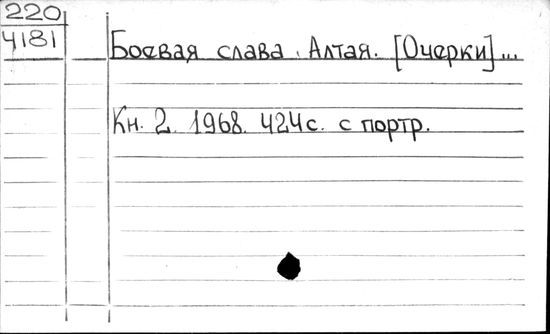 220
4181
Боевая слава Алтая. [Очерки]...
Кн. 2. 1968. 424с. с портр.